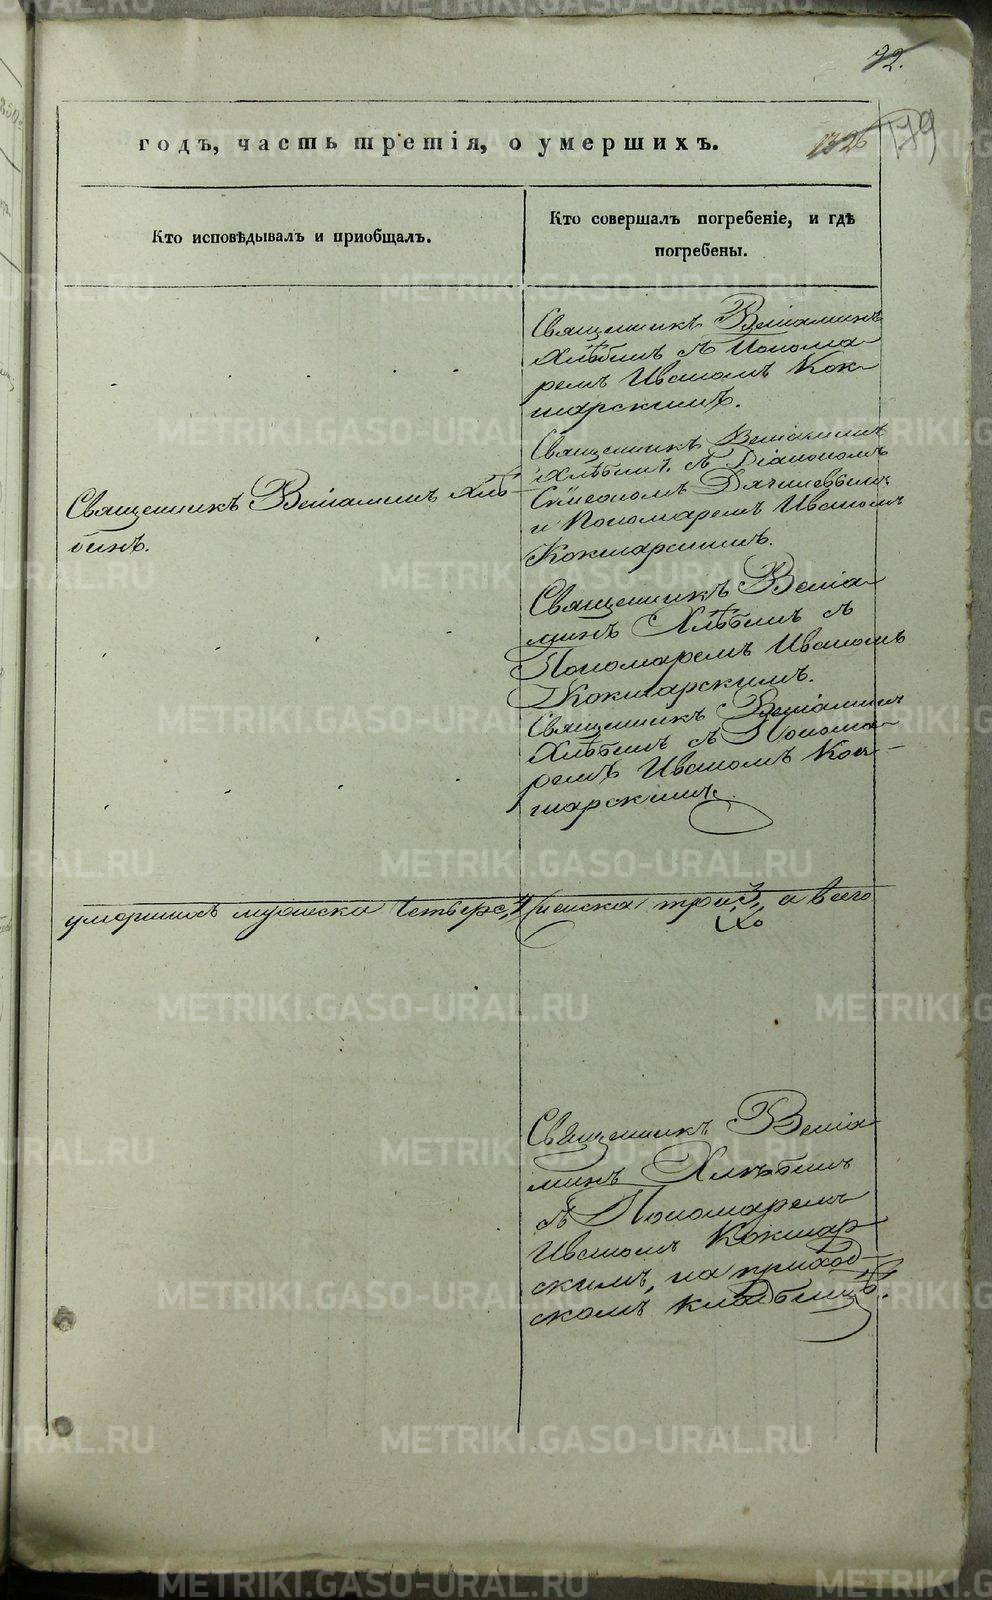 72.
годъ, часть третія, о умершихъ.
179
Кто исповѣдывалъ и приобщалъ.
Кто совершалъ погребеніе, и гдѣ
погребены.
Священникъ Веніаминъ
Хлѣбинъ съ Понома-
ремъ Иваномъ Кок-
шарскимъ.
Священникъ Веніаминъ Хлѣ-
бинъ.
Священникъ Веніаминъ
Хлѣбинъ съ Діакономъ
Симеономъ
и Пономаремъ Иваномъ
Кокшарскимъ.
Священникъ Веніа-
минъ Хлѣбинъ съ
Пономаремъ Иваномъ
Кокшарскимъ.
Священникъ Веніаминъ
Хлѣбинъ съ Понома-
ремъ Иваномъ Кок-
шарскимъ.
умершихъ мужеска четверо 4 женска трои 3 а всего
Священникъ Веніа-
минъ Хлѣбинъ
съ Пономаремъ
Иваномъ Кокшар-
скимъ, на приход-
скомъ кладбищѣ.
METRIKI.GASO-URAL.RU